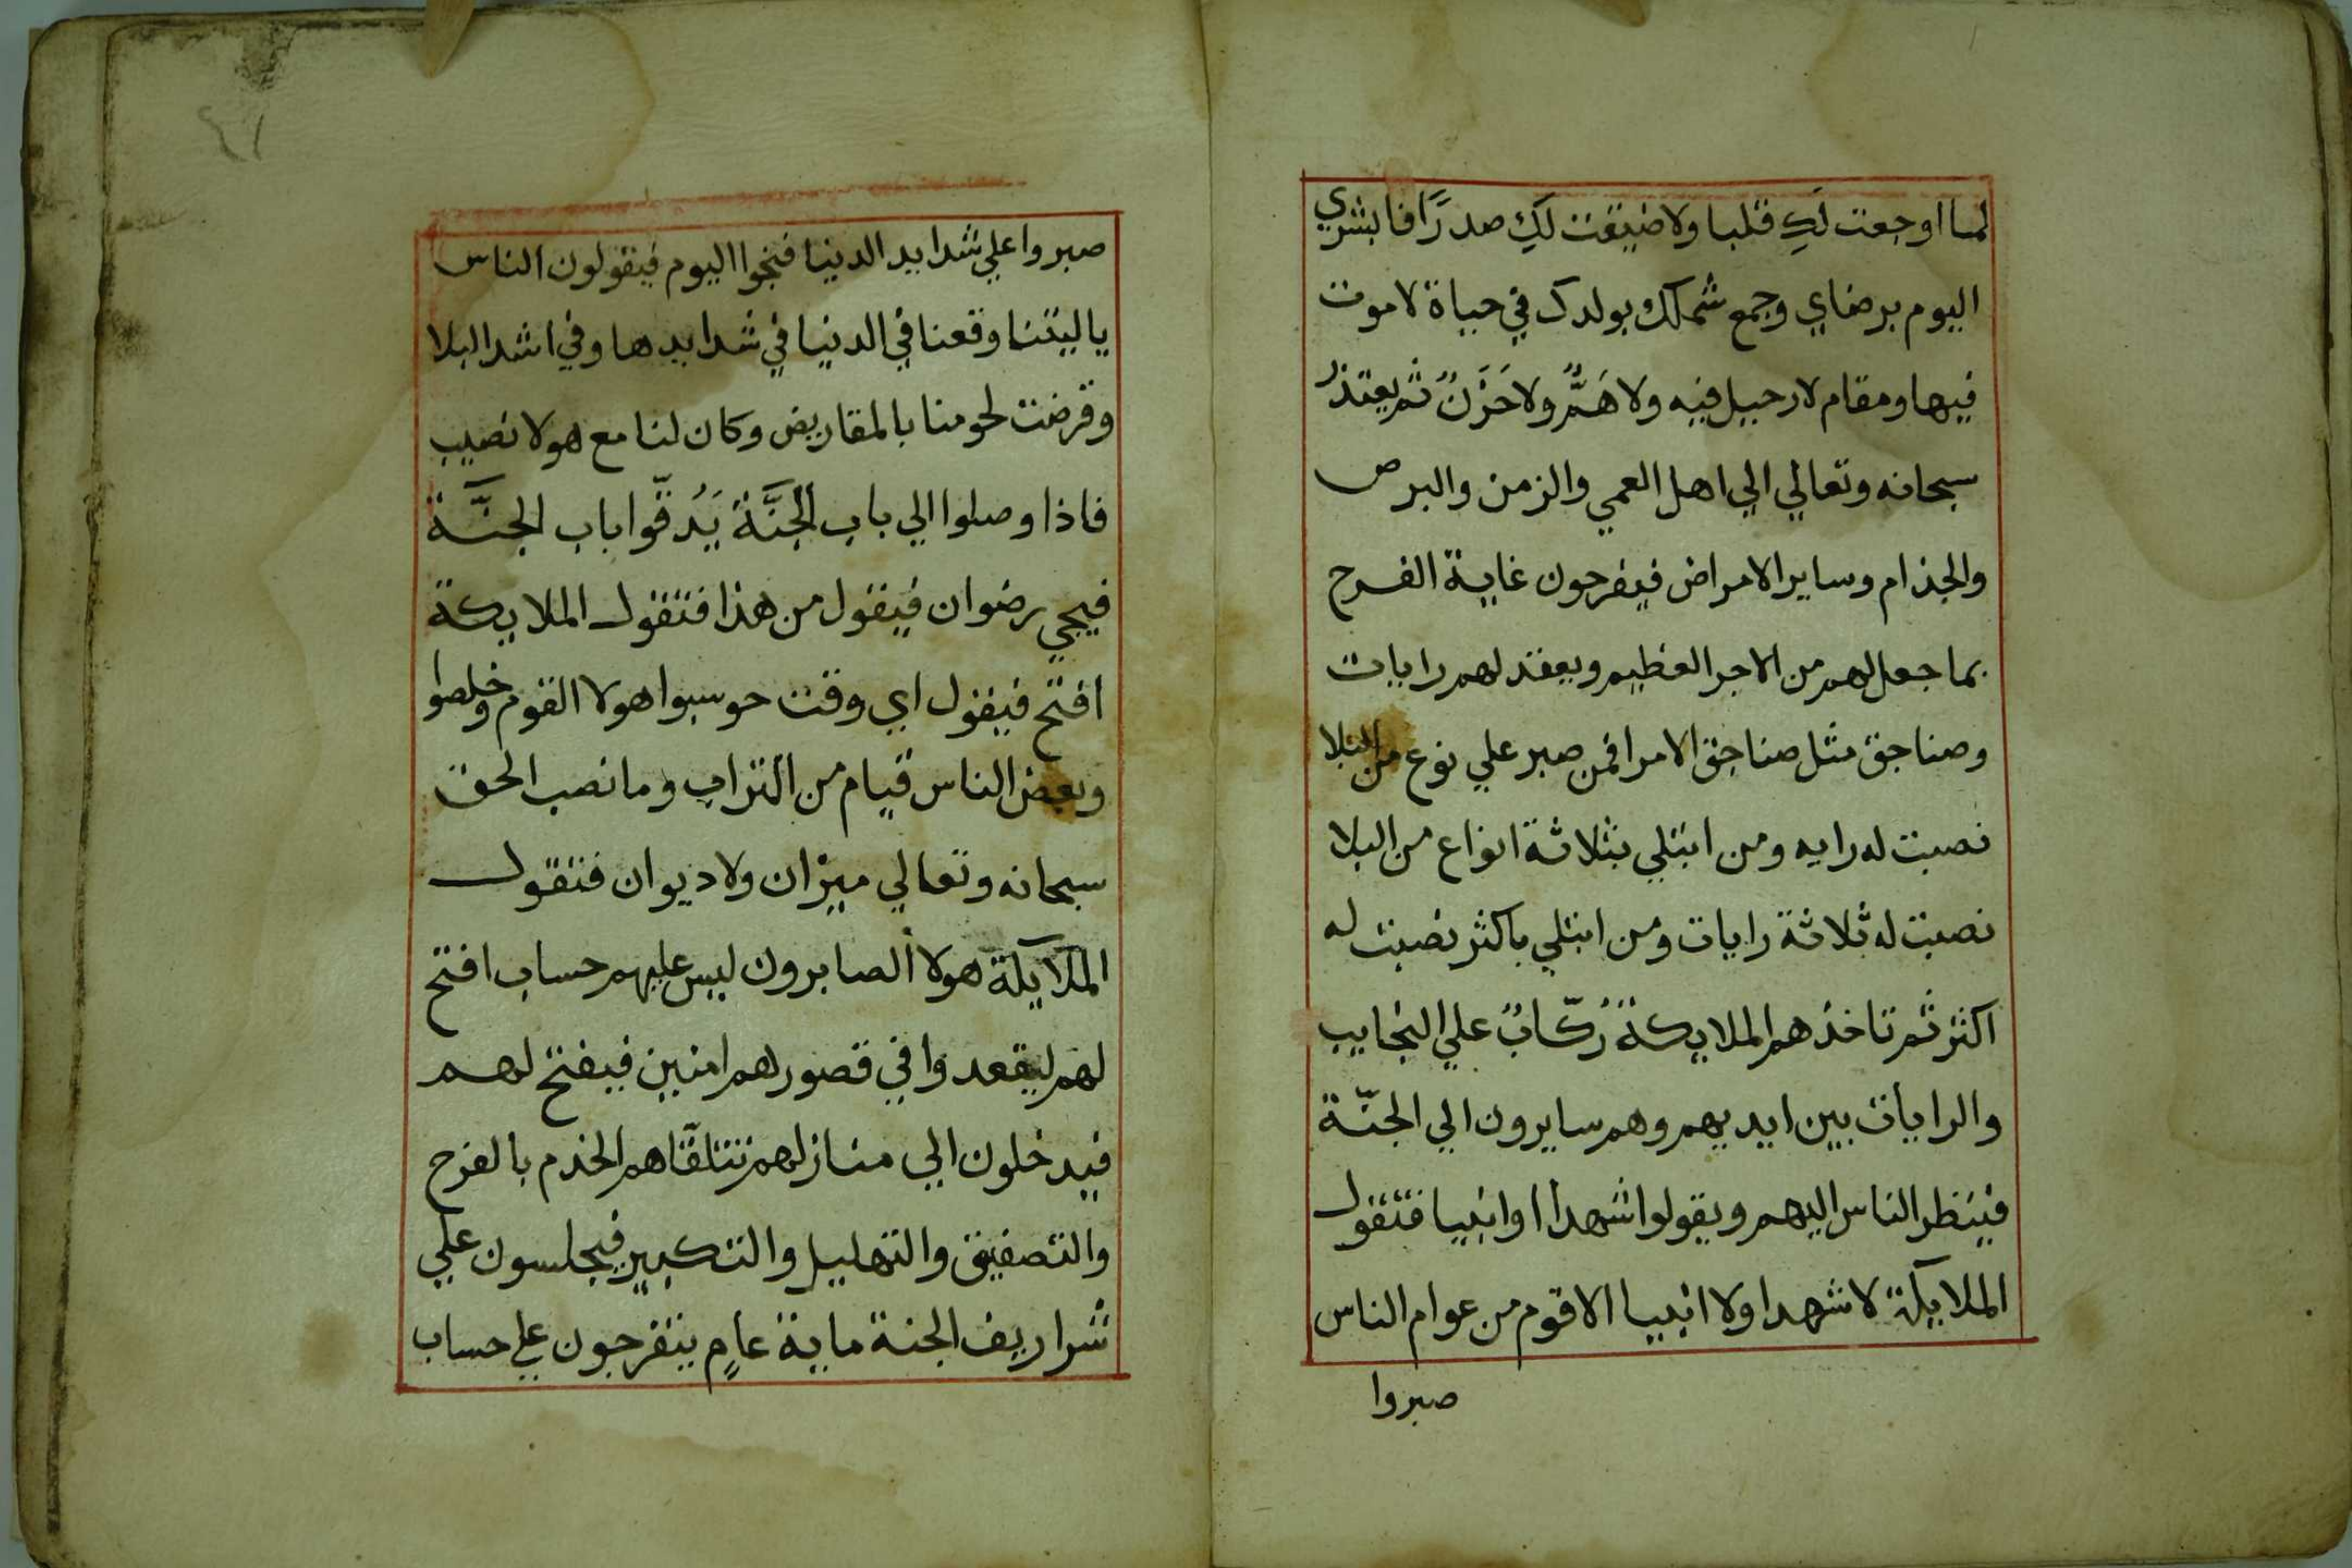 لما اوجعت لكِ قلبا ولا ضيقت لكِ صدرًا فابشري
اليوم برضاي وجمع شملك بولدك في حياة لا موت
فيها ومقام لا رحيل فيه ولا هَمٌّ ولا حَزَنٌ ثم يعتذر
سبحانه وتعالي الي اهل العمي والزمن والبرص
والجذام وساير الامراض فيفرحون غاية الفرح
بما جعل لهم من الاجر العظيم ويعقد لهم رايات
وصناجق مثل صناجق الامرا فمن صبر علي نوع من البلا
نصبت له رايه ومن ابتلي بثلاثة انواع من البلا
نصبت له ثلاثة رايات ومن ابتلي باكثر نصبت له
اكثر ثم تاخذهم الملايكة رُكّابٌ علي النجايب
والرايات بين ايديهم وهم سايرون الي الجنّة
فينظر الناس اليهم ويقولوا شهدا اوانبيا فتقول
الملايكة لا شهدا ولا انبيا الا قوم من عوام الناس
صبروا
٤١
صبروا علي شدايد الدنيا فنجوا اليوم فيقولون الناس
ياليتنا وقعنا في الدنيا في شدايدها وفي اشد البلا
وقرضت لحومنا بالمقاريض وكان لنا مع هولا نصيب
فاذا وصلوا الي باب الجنَّة يَدُقّوا باب الجنَّة
فيجي رضوان فيقول من هذا فتقول الملايكة
افتح فيقول اي وقت حوسبوا هولا القوم وخلصوا
وبعض الناس قيام من التراب وما نصب الحق
سبحانه وتعالي ميزان ولا ديوان فتقول
الملايكة هولا الصابرون ليس عليهم حساب افتح
لهم ليقعدوا في قصورهم امنين فيفتح لهم
فيدخلون الي منازلهم تتلقّاهم الخدم بالفرح
والتصفيق والتهليل والتكبير فيجلسون علي
شراريف الجنة ماية عامٍ يتفرجون علي حساب